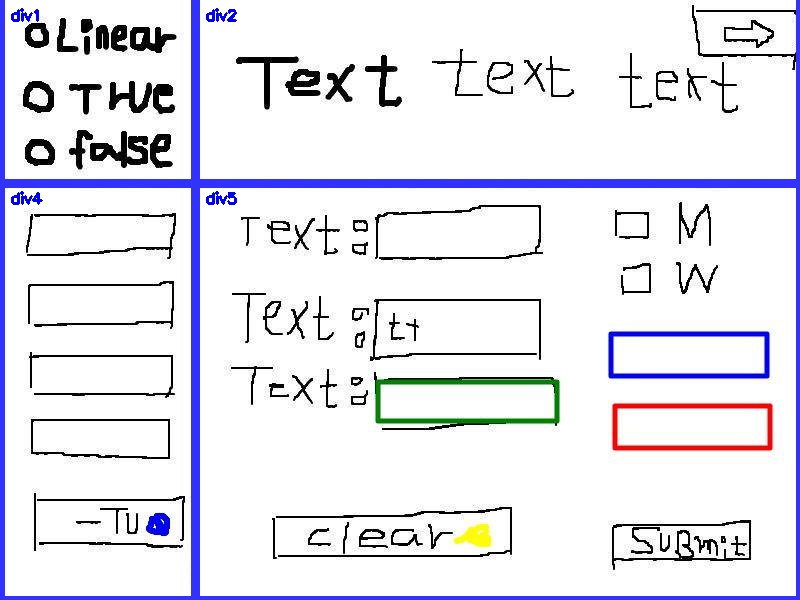 div1
Linear
THUE
false
div2
Text text text
div4
-TU
div5
Text:
M
W
Text: tt
Text:
clear
SUBmit